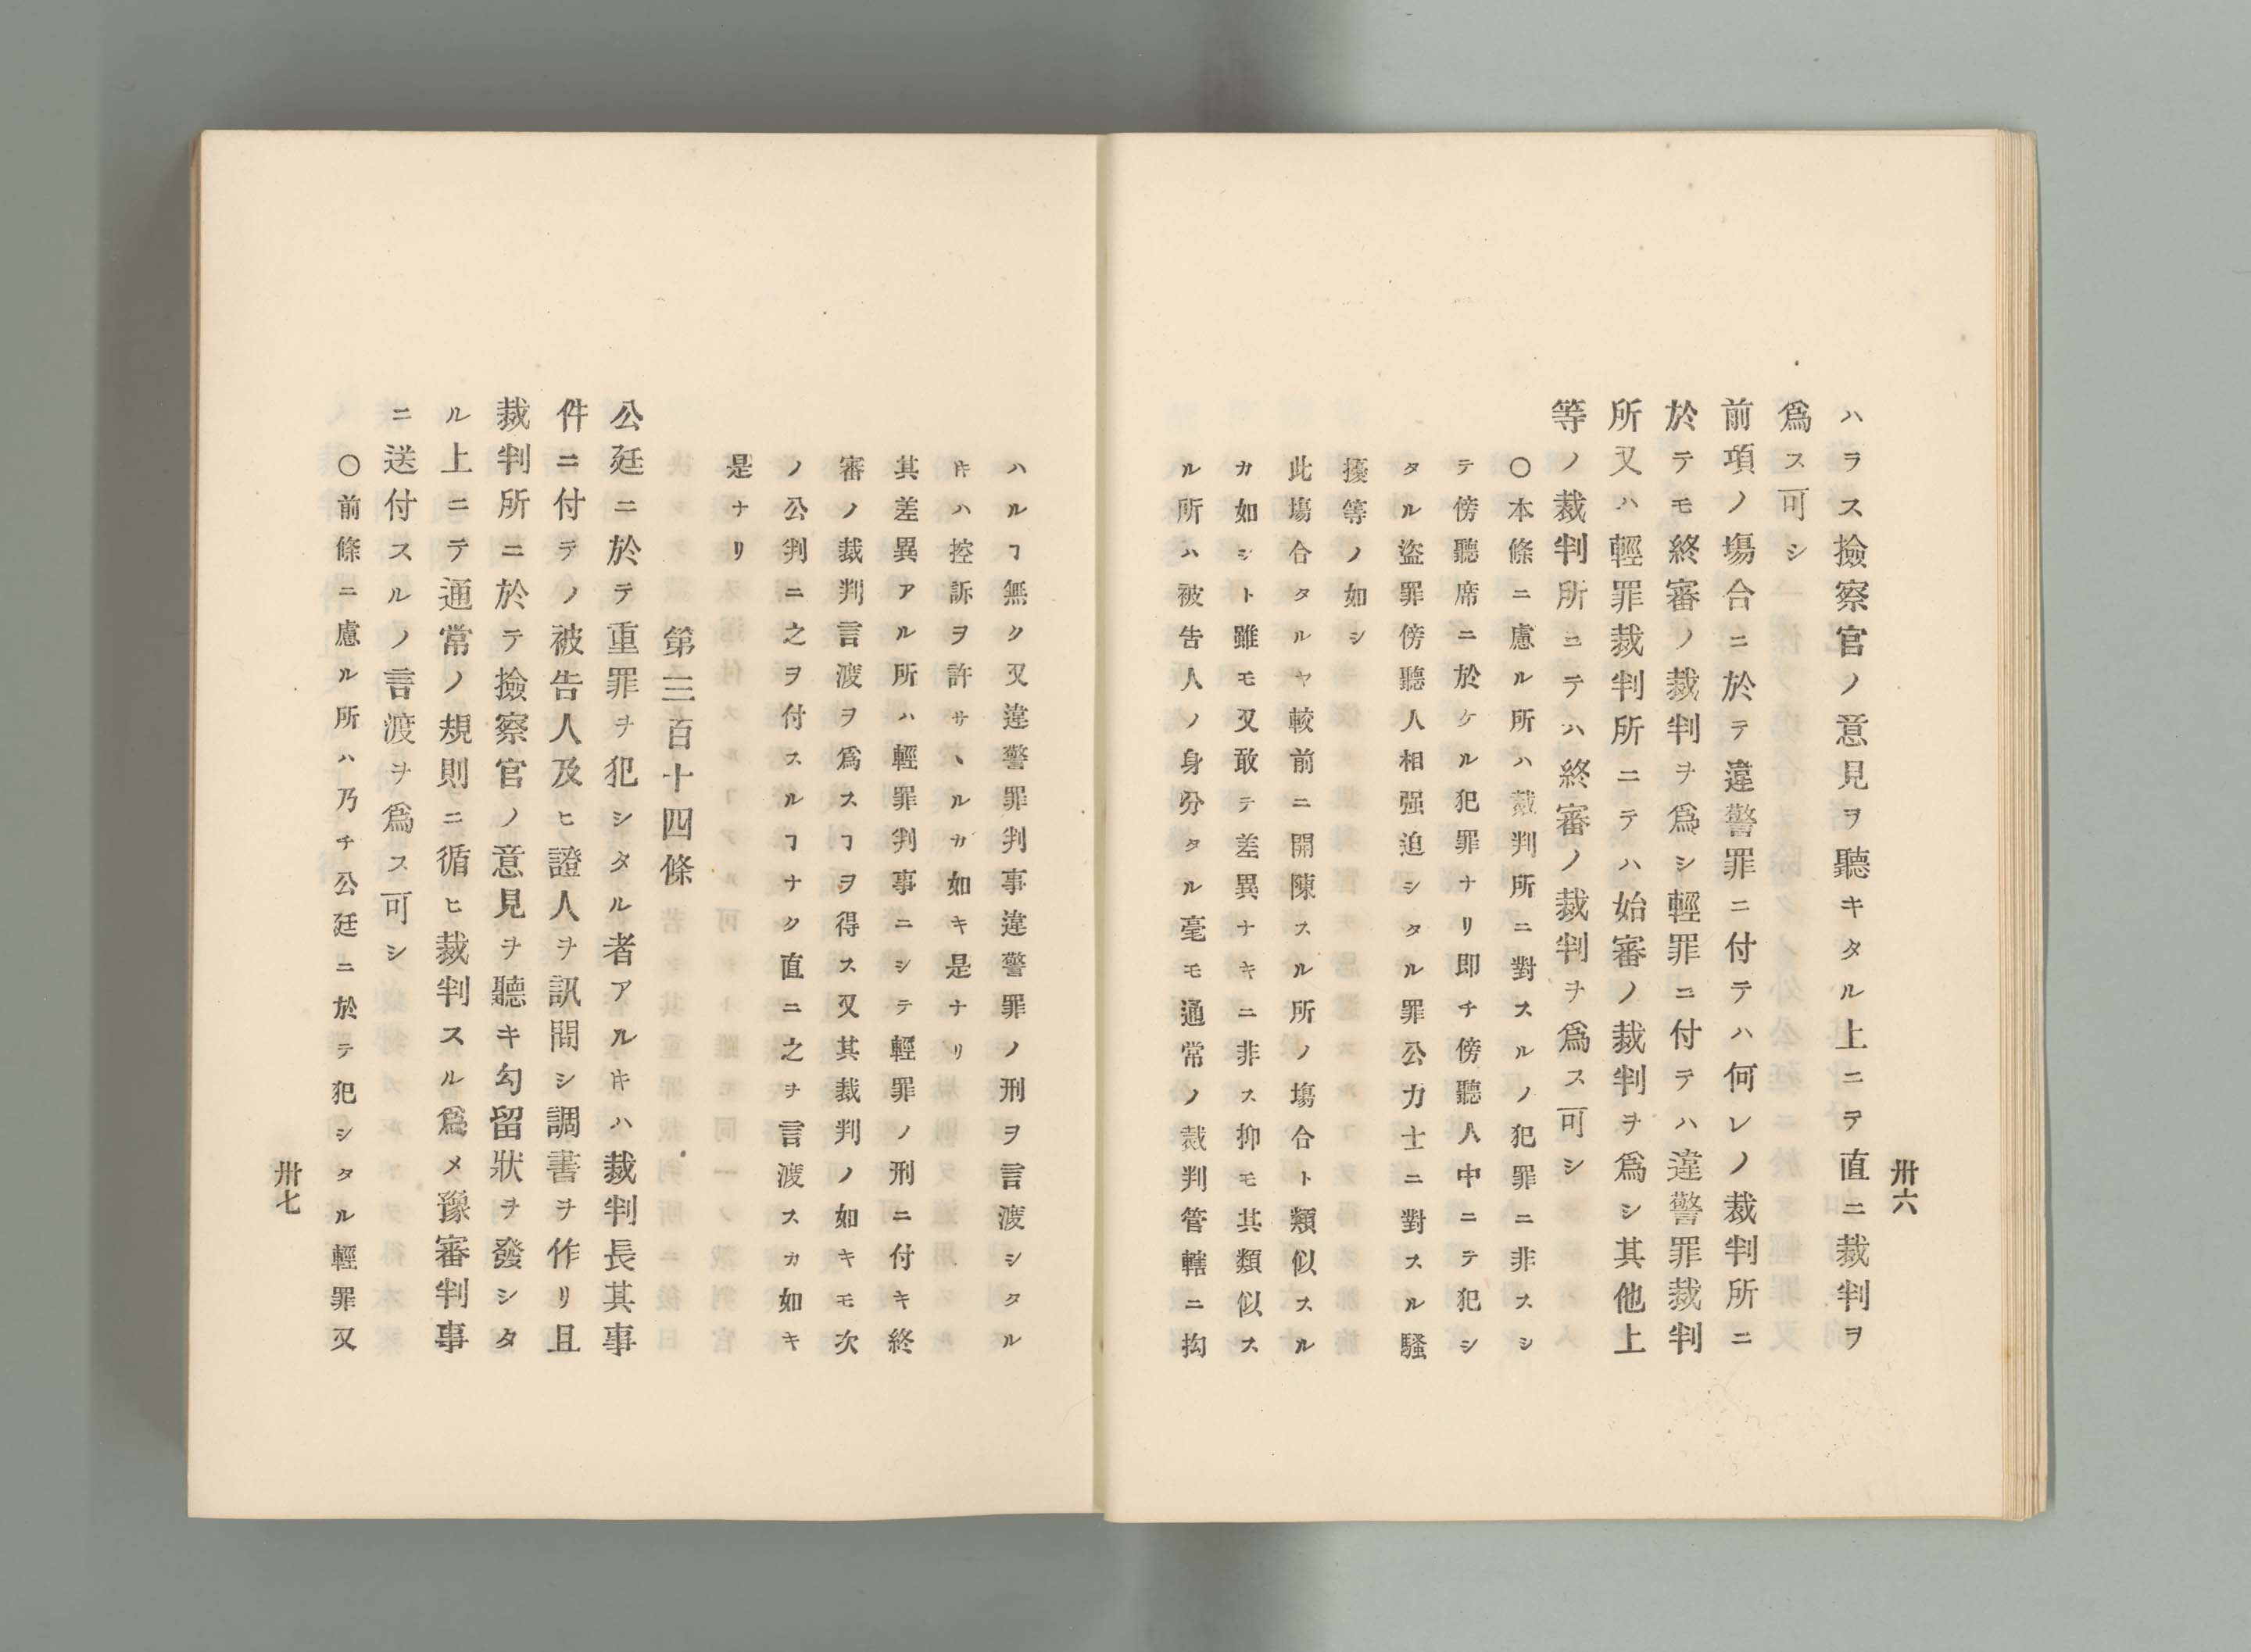 卅六
ハラス撿察官ノ意見ヲ聽キタル上ニテ直ニ裁判ヲ
爲ス可シ
前項ノ塲合ニ於テ違警罪ニ付テハ何レノ裁判所ニ
於テモ終審ノ裁判ヲ爲シ輕罪ニ付テハ違警罪裁判
所又ハ輕罪裁判所ニテハ始審ノ裁判ヲ爲シ其他上
等ノ裁判所ニテハ終審ノ裁判ヲ爲ス可シ
〇本條ニ慮ル所ハ裁判所ニ對スルノ犯罪ニ非スシ
テ傍聽席ニ於ケル犯罪ナリ即チ傍聽人中ニテ犯シ
タル盜罪傍聽人相强迫シタル罪公力士ニ對スル騷
擾等ノ如シ
此塲合タルヤ較前ニ開陳スル所ノ塲合ト類似スル
カ如シト雖モ又敢テ差異ナキニ非ス抑モ其類似ス
ル所ハ被告人ノ身分タル毫モ通常ノ裁判管轄ニ拘
ハルヿ無ク又違警罪判事違警罪ノ刑ヲ言渡シタル
キハ控訴ヲ許サヽルカ如キ是ナリ
其差異アル所ハ輕罪判事ニシテ輕罪ノ刑ニ付キ終
審ノ裁判言渡ヲ爲スヿヲ得ス又其裁判ノ如キモ次
ノ公判ニ之ヲ付スルヿナク直ニ之ヲ言渡スカ如キ
是ナリ
第三百十四條
公廷ニ於テ重罪ヲ犯シタル者アルキハ裁判長其事
件ニ付テノ被告人及ヒ證人ヲ訊問シ調書ヲ作リ且
裁判所ニ於テ撿察官ノ意見ヲ聽キ勾留狀ヲ發シタ
ル上ニテ通常ノ規則ニ循ヒ裁判スル爲メ豫審判事
ニ送付スルノ言渡ヲ爲ス可シ
〇前條ニ慮ル所ハ乃チ公廷ニ於テ犯シタル輕罪又
卅七